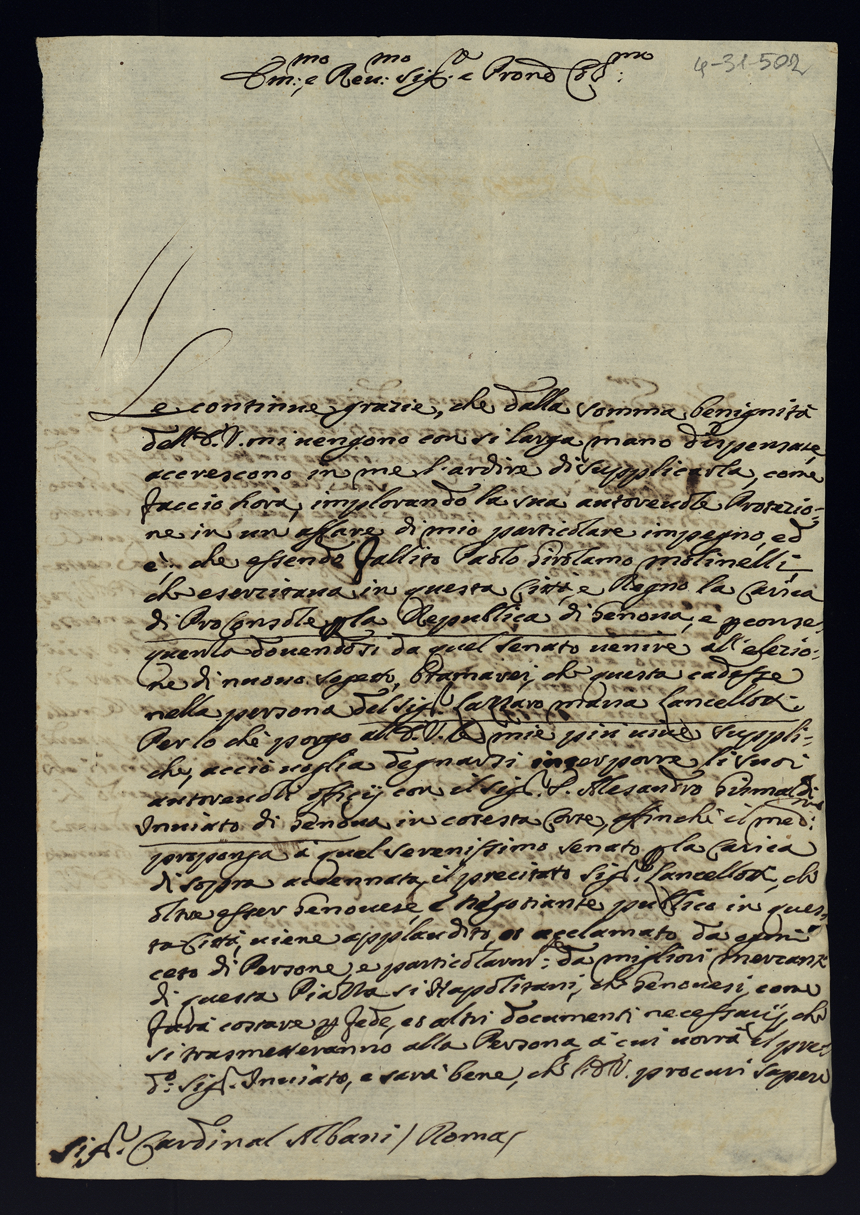 4-31-502
Em:mo e Reu:mo Sig:r e Prone Col:mo
Le continue grazie, che dalla somma benignità
dell'E.V. mi uengono con si larga mano dispensate,
accrescono in me l'ardire di supplicarla, come
faccio hora, implorando la sua autoreuole Protezio-
ne in un affare di mio particolare impegno, ed
è, che essendo fallito Paolo Girolamo Molinelli,
che esercitaua in questa Città, e Regno la Carica
di ProConsole p la Republica di Genoua, e p conse-
quenza douendosi da quel Senato uenire all'elezio-
ne di nuouo sogetto, bramarei, che questa cadesse
nella persona del Sig:r Lazzaro Maria Lancellotti.
Per lo che porgo all'E.V. le mie più uiue suppli-
che, acciò uoglia degnarsi interporre li suoi
autoreuoli officij con il Sig:r P. Alesandro Grimaldi
Inuiato di Genoua in cotesta Corte, affinche il med:mo
proponga à quel Serenissimo Senato p la Carica
di sopra accennata, il precitato Sig:r Lancellotti, che
oltre esser Genouese, e Negotiante publico in ques-
ta Città, uiene applaudito, et acclamato da ogni
ceto di Persone, e particolarm:te da migliori mercanti
di questa Piazza si Napolitani, che Genouesi, come
farà costare p fede, et altri documenti necessarij, che
si trasmetteranno alla Persona, à cui uorrà il pre-
d:o Sig:r Inuiato, e sarà bene, che l'E.V. procuri sapere
Sig:r Cardinal Albani / Roma /